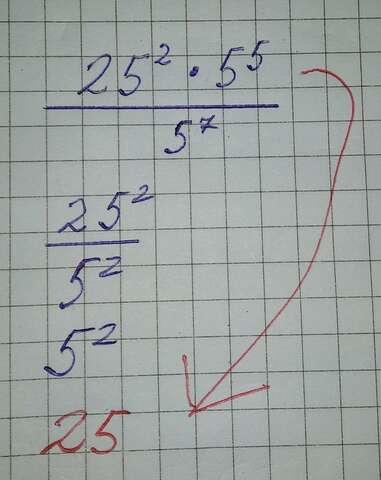 25² · 5⁵
5⁷
25²
5²
5²
25